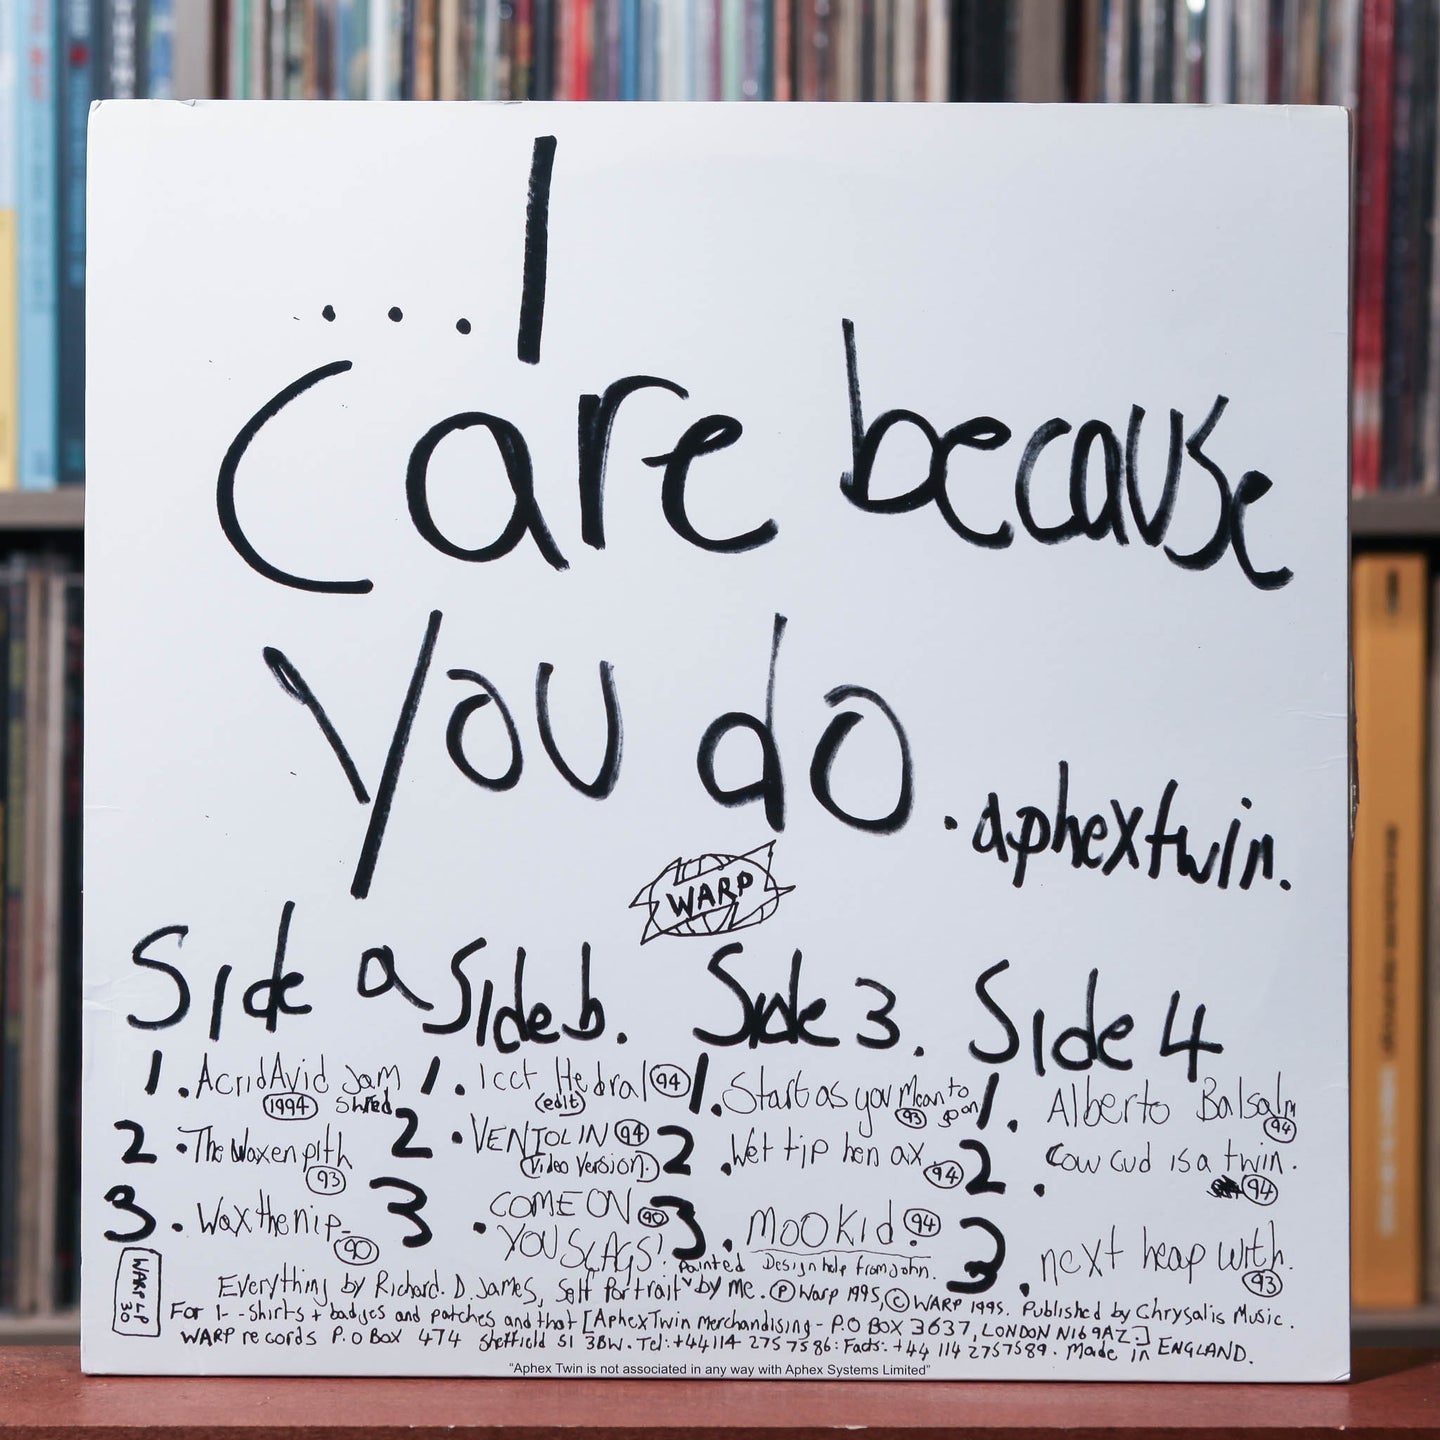 ...I
Care because
you do.
aphextwin.
WARP
Side a
1. Acrid Avid Jam
1994 Shred
2. The Waxen pith
93
3. Wax the nip
90
Side b.
1. Icct Hedral 94
(edit)
2. VENTOLIN 94
(Video Version.)
3. COME ON 90
YOU SLAGS!
Side 3.
1. Start as you Mean to
93 go on
2. Wet tip hen ax
94
3. MOOKid. 94
Side 4
1. Alberto Balsalm
94
2. Cow cud is a twin.
94
3. next heap with.
93
WARP LP
30
painted Design help from john.
Everything by Richard. D. James, Self Portrait by me. Ⓟ Warp 1995, © WARP 1995. Published by Chrysalis Music.
For t-shirts + badges and patches and that [AphexTwin Merchandising - P.O BOX 3637, LONDON N16 9AZ.]
WARP records P.O BOX 474 Sheffield S1 3BW. Tel: +44114 2757586: Facts: +44 114 2757589. Made in ENGLAND.
"Aphex Twin is not associated in any way with Aphex Systems Limited"